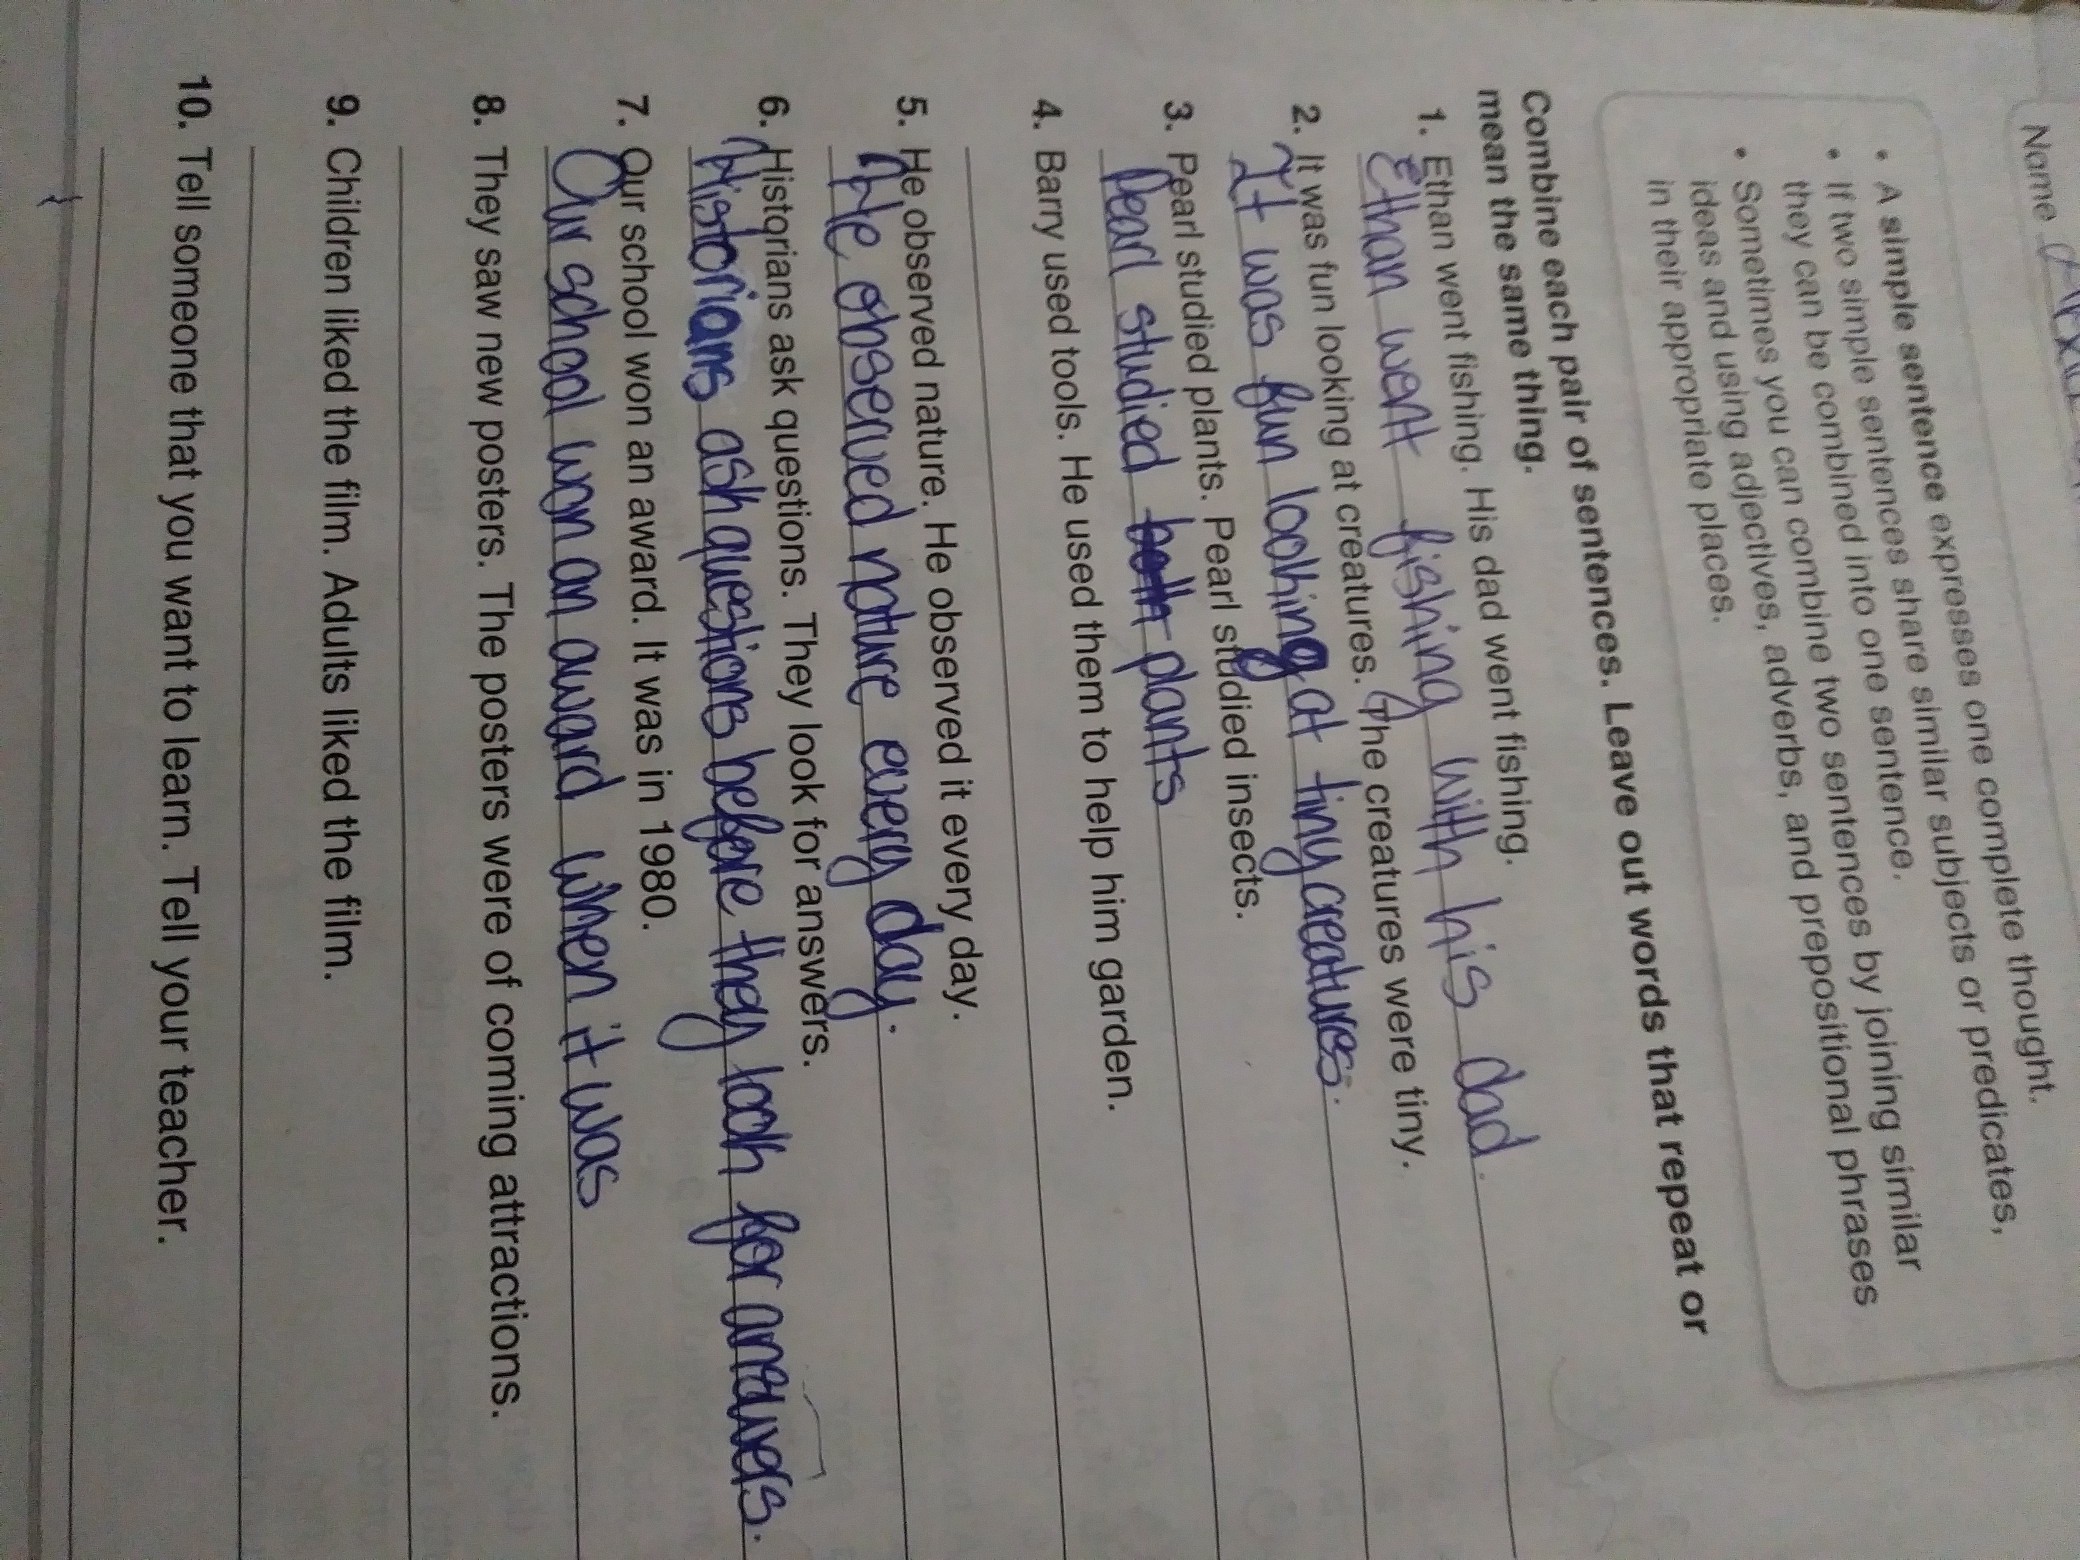 Name
• A simple sentence expresses one complete thought.
• If two simple sentences share similar subjects or predicates,
they can be combined into one sentence.
• Sometimes you can combine two sentences by joining similar
ideas and using adjectives, adverbs, and prepositional phrases
in their appropriate places.
Combine each pair of sentences. Leave out words that repeat or
mean the same thing.
1. Ethan went fishing. His dad went fishing.
Ethan went fishing with his dad.
2. It was fun looking at creatures. The creatures were tiny.
It was fun looking at tiny creatures.
3. Pearl studied plants. Pearl studied insects.
Pearl studied both plants
4. Barry used tools. He used them to help him garden.
5. He observed nature. He observed it every day.
He observed nature every day.
6. Historians ask questions. They look for answers.
Historians ask questions before they look for answers.
7. Our school won an award. It was in 1980.
Our school won an award when it was
8. They saw new posters. The posters were of coming attractions.
9. Children liked the film. Adults liked the film.
10. Tell someone that you want to learn. Tell your teacher.